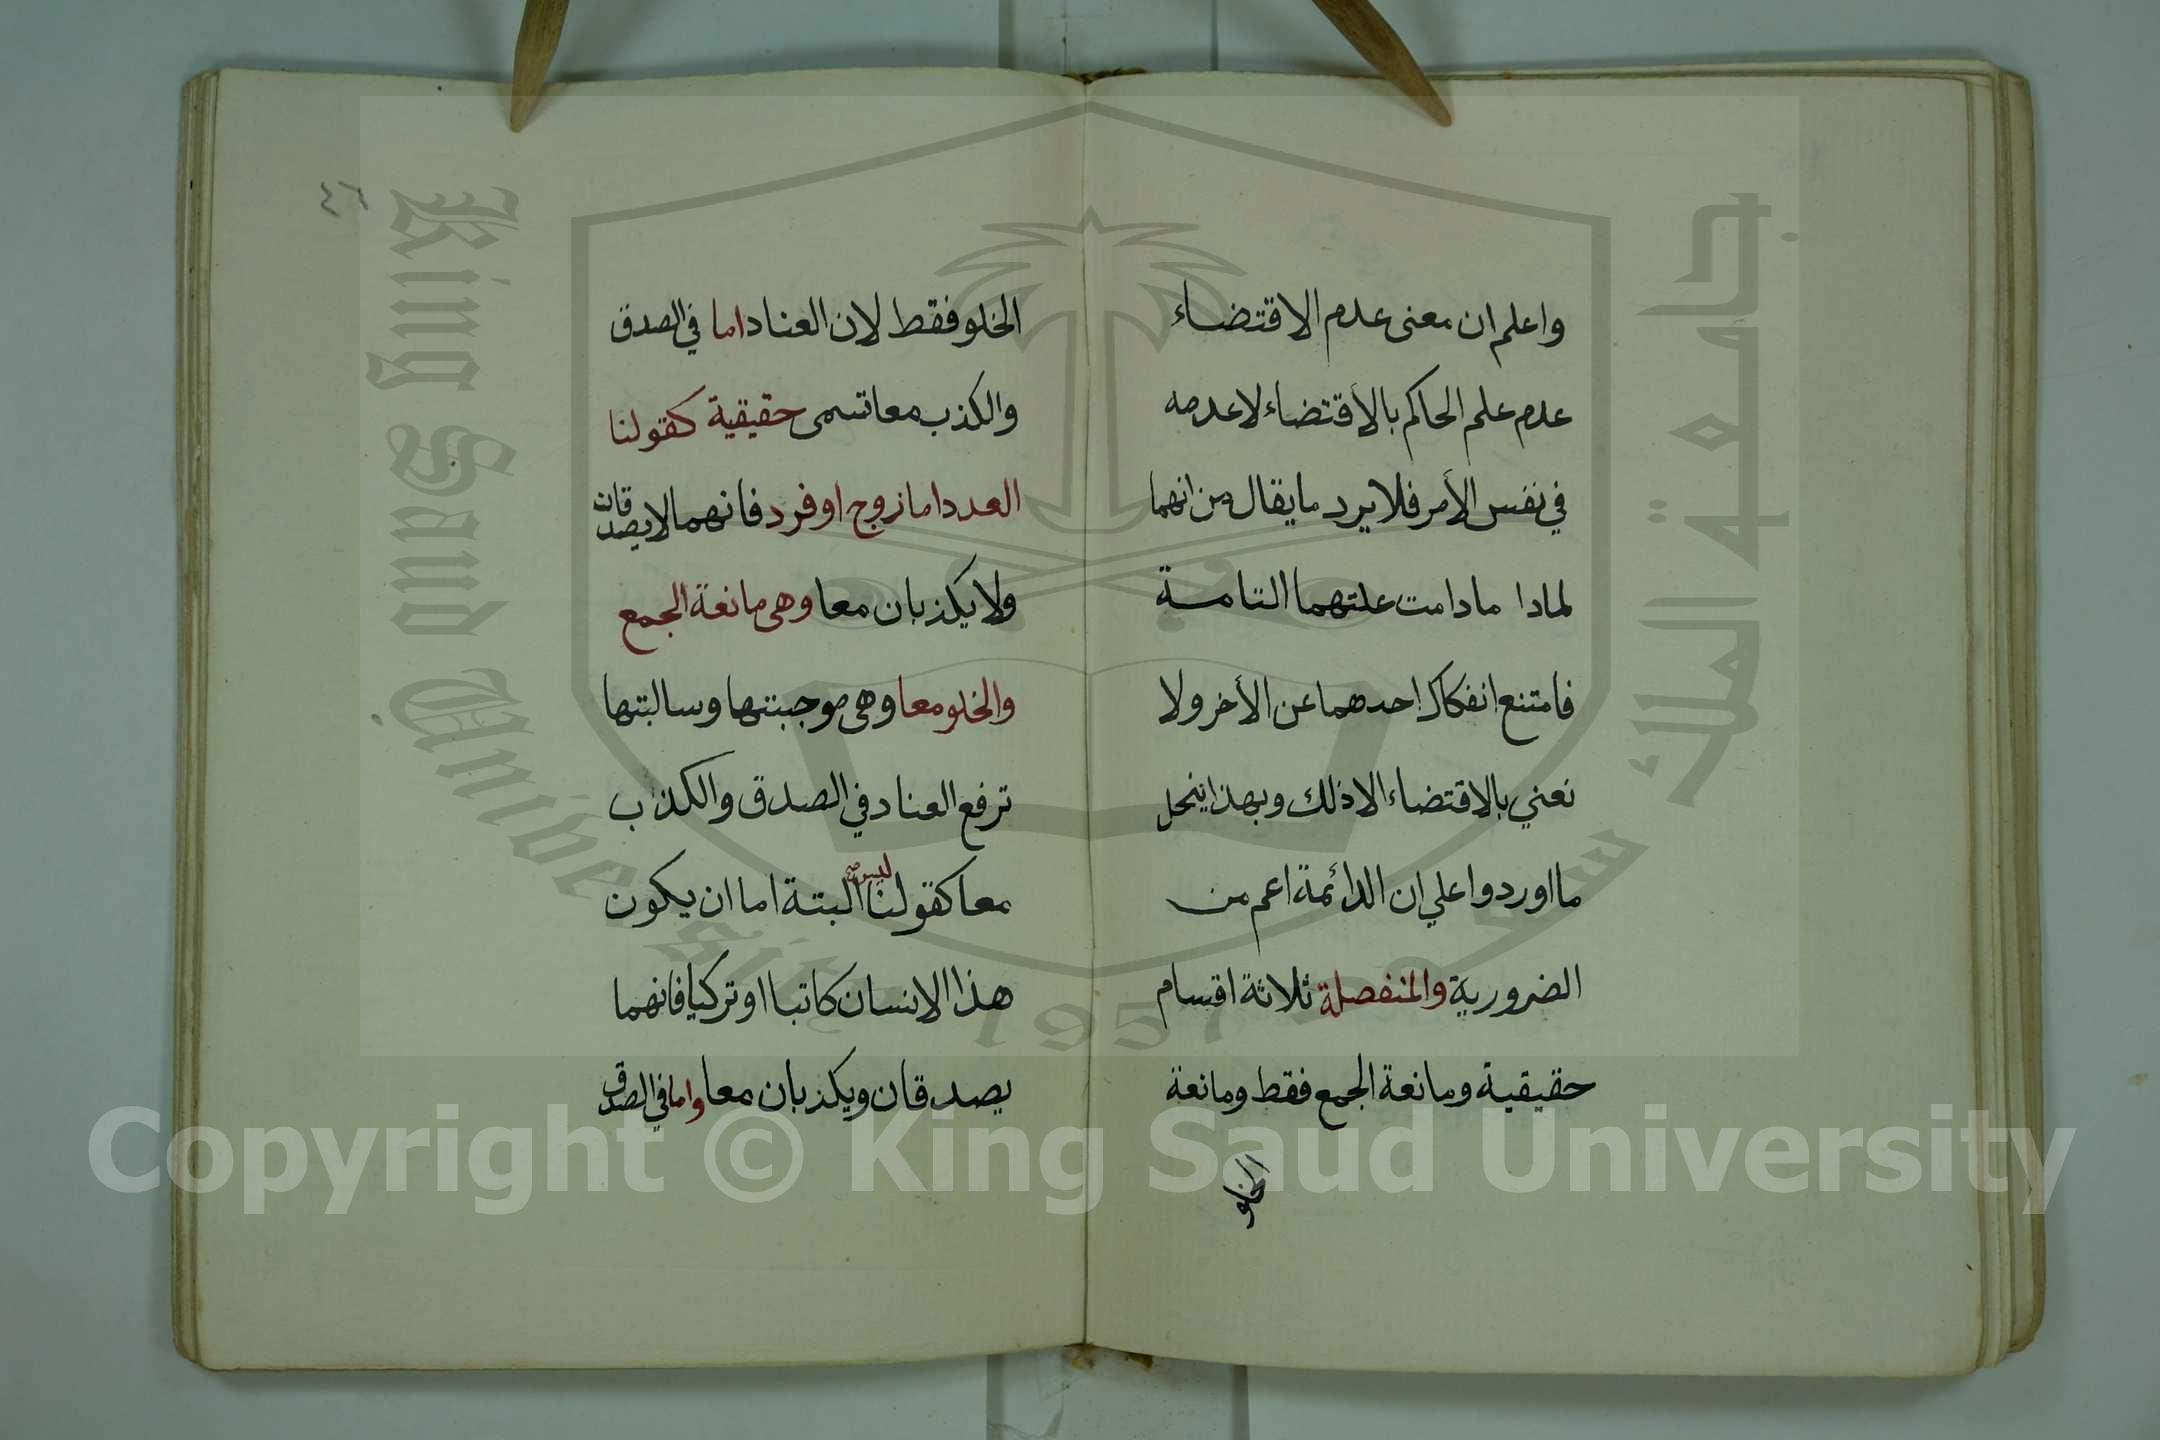 واعلم ان معنى عدم الاقتضاء
عدم علم الحاكم بالأقتضاء لا عدمه
في نفس الأمر فلا يرد ما يقال من انهما
لماذا مادامت علتهما التامة
فامتنع انفكاك احدهما عن الأخر ولا
نعني بالاقتضاء الا ذلك وبهذا ينحل
ما اوردوا علي ان الدائمة اعم من
الضرورية والمنفصلة ثلاثة اقسام
حقيقية ومانعة الجمع فقط ومانعة
الخلو
٤٦
الخلو فقط لان العناد اما في الصدق
والكذب معا تسمى حقيقية كقولنا
العدد اما زوج او فرد فانهما لا يصدقان
ولا يكذبان معا وهى مانعة الجمع
والخلو معا وهى موجبتها وسالبتها
ترفع العناد في الصدق والكذب
معا كقولنا ليس صح البتة اما ان يكون
هذا الانسان كاتبا او تركيا فانهما
يصدقان ويكذبان معا واما في الصدق
King Saud University
جامعة الملك سعود
1957
Copyright © King Saud University